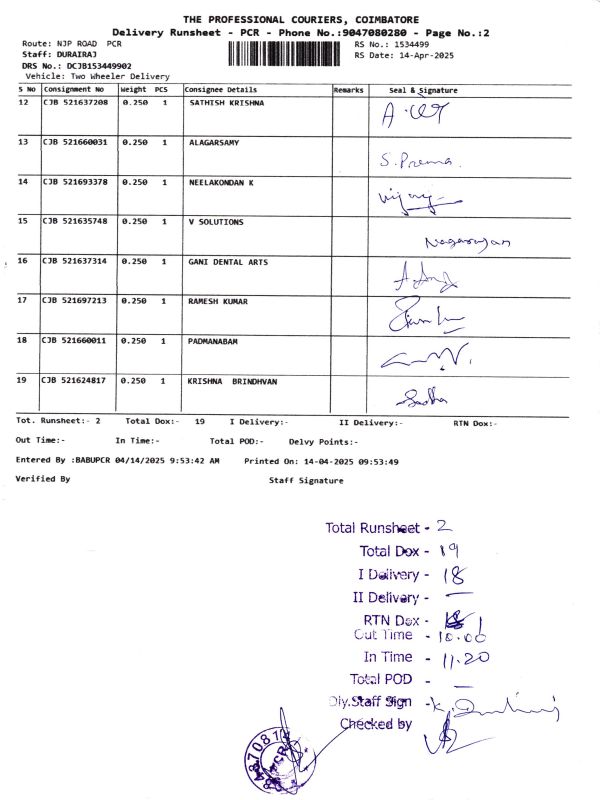 THE PROFESSIONAL COURIERS, COIMBATORE
Delivery Runsheet - PCR - Phone No.:9047080280 - Page No.:2
Route: NJP ROAD PCR RS No.: 1534499
Staff: DURAIRAJ RS Date: 14-Apr-2025
DRS No.: DCJB153449902
Vehicle: Two Wheeler Delivery
S No Consignment No Weight PCS Consignee Details Remarks Seal & Signature
12 CJB 521637208 0.250 1 SATHISH KRISHNA
13 CJB 521660031 0.250 1 ALAGARSAMY S. Prema.
14 CJB 521693378 0.250 1 NEELAKONDAN K
15 CJB 521635748 0.250 1 V SOLUTIONS Nagarajan
16 CJB 521637314 0.250 1 GANI DENTAL ARTS
17 CJB 521697213 0.250 1 RAMESH KUMAR
18 CJB 521660011 0.250 1 PADMANABAM
19 CJB 521624817 0.250 1 KRISHNA BRINDHVAN Sudha
Tot. Runsheet:- 2 Total Dox:- 19 I Delivery:- II Delivery:- RTN Dox:-
Out Time:- In Time:- Total POD:- Delvy Points:-
Entered By :BABUPCR 04/14/2025 9:53:42 AM Printed On: 14-04-2025 09:53:49
Verified By Staff Signature
Total Runsheet - 2
Total Dox - 19
I Delivery - 18
II Delivery - —
RTN Dox - 1
Out Time - 10.00
In Time - 11.20
Total POD - —
Dly.Staff Sign - K.
Checked by
PCR